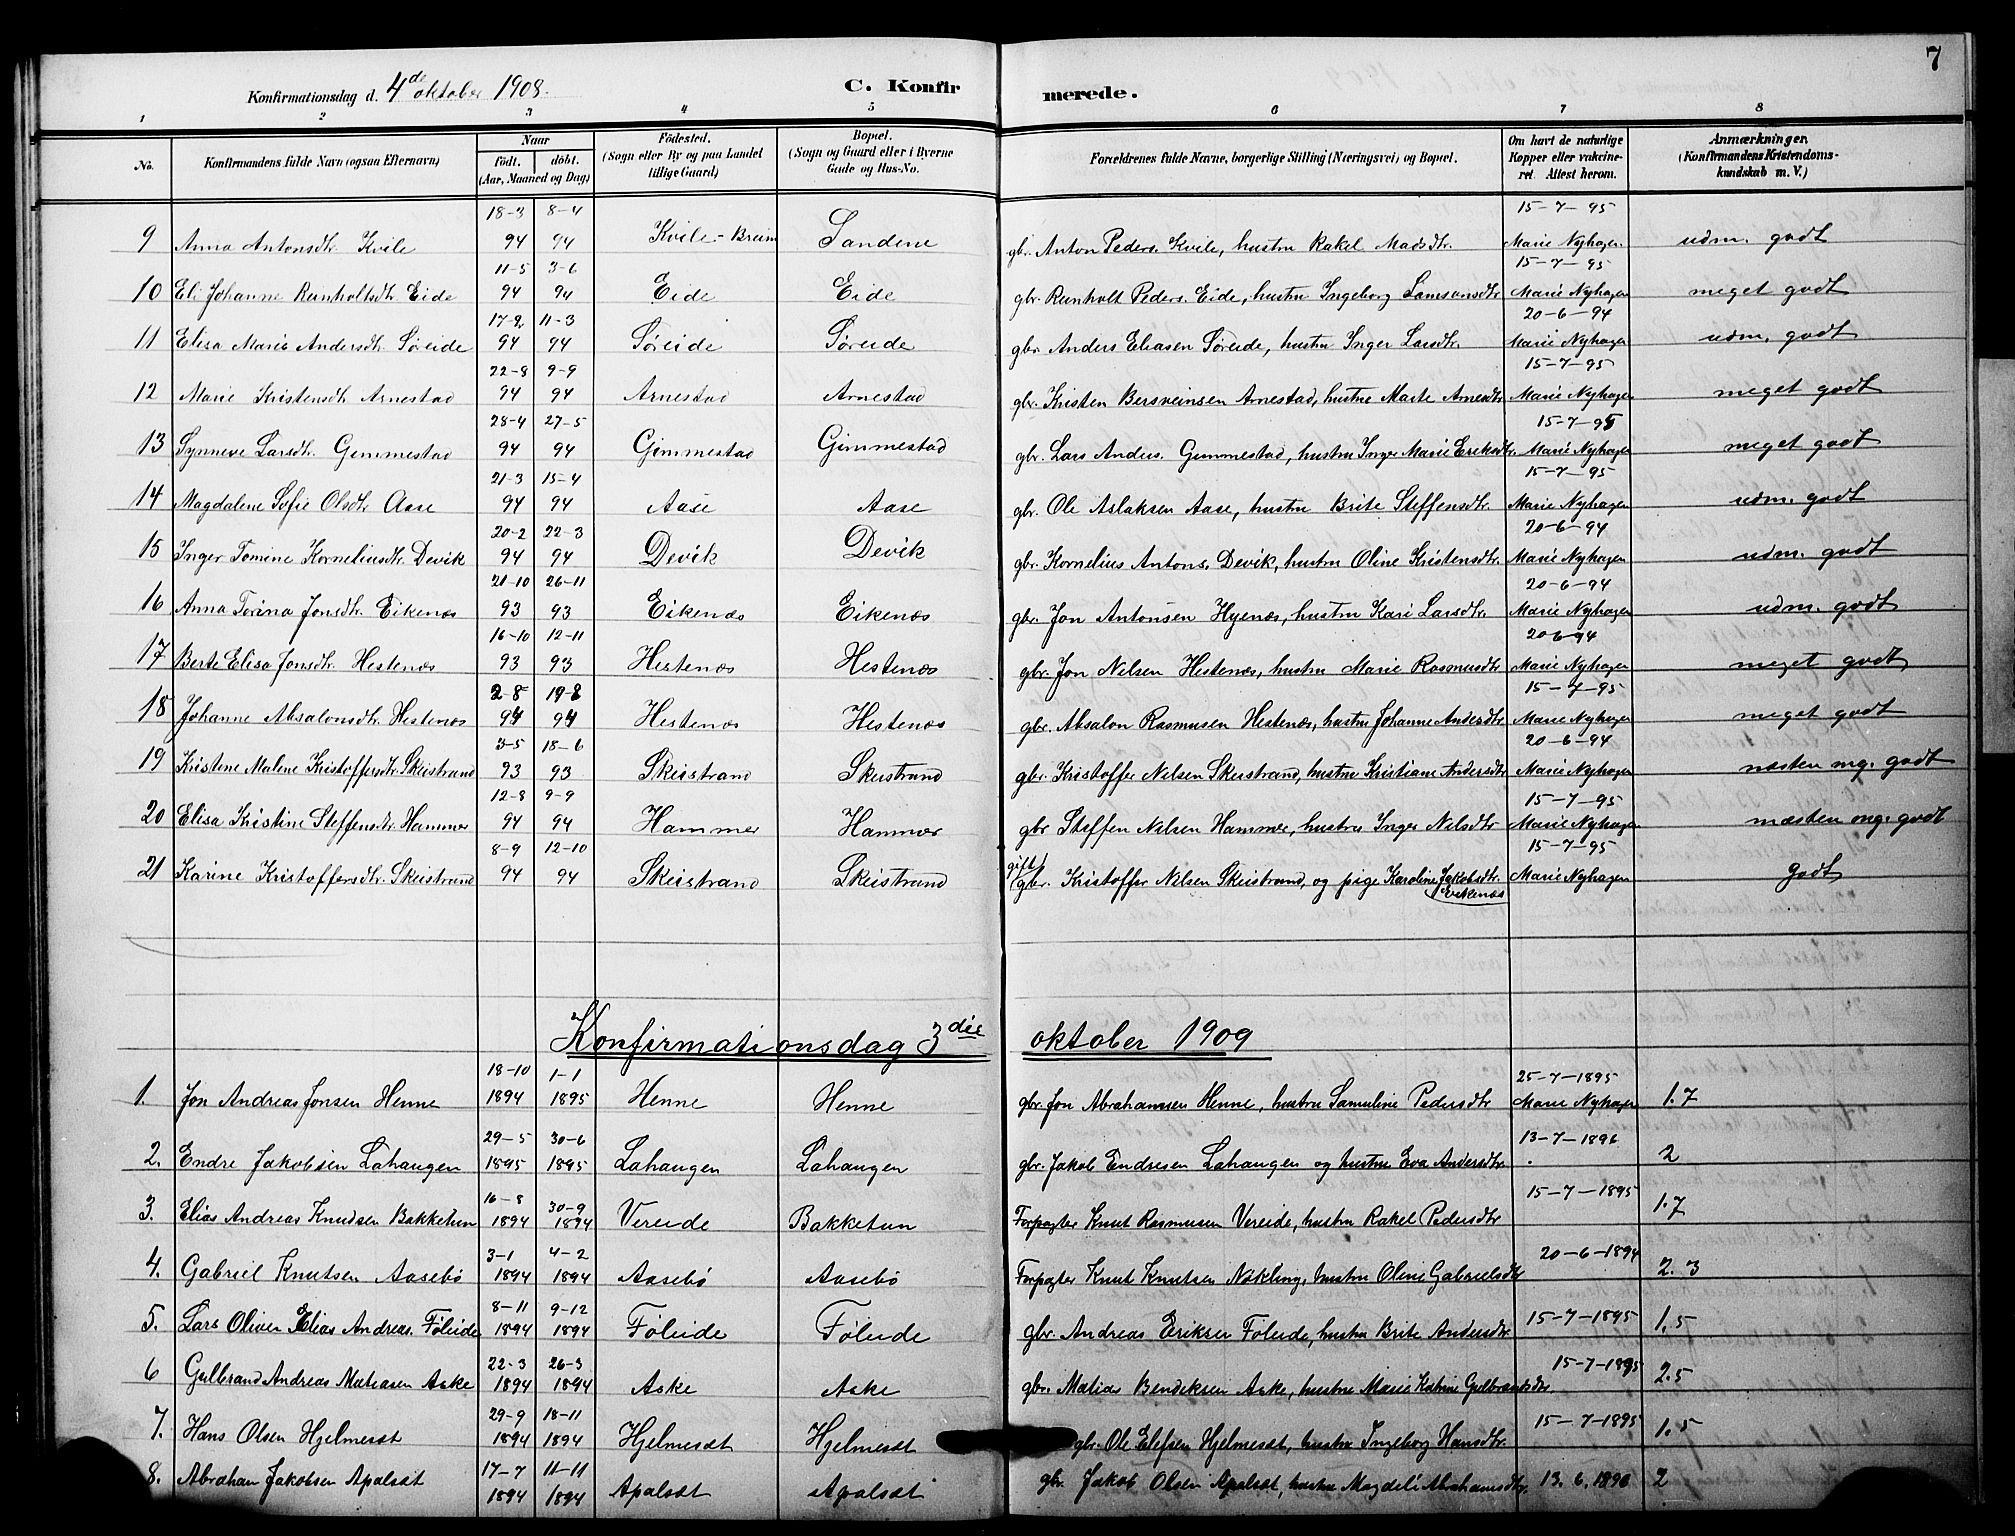 7
Konfirmationsdag d. 4de oktober 1908. C. Konfirmerede.
1 2 3 4 5 6 7 8
No. Konfirmandens fulde Navn (ogsaa Efternavn) Naar født. døbt. (Aar, Maaned og Dag) Födested. (Sogn eller By og paa Landet tillige Gaard) Bopæl. (Sogn og Gaard eller i Byerne Gade og Hus-No. Forældrenes fulde Navne, borgerlige Stilling (Næringsvei) og Bopæl. Om havt de naturlige Kopper eller vakcineret. Attest herom. Anmærkninger. (Konfirmandens Kristendomskundskab m. V.)
18-3 8-4 15-7-95
9 Anna Antonsdtr. Kvile 94 94 Kvile-Breim Sandene gbr. Anton Peders. Kvile, hustru Rakel Madsdtr. Marie Nyhagen udm. godt
11-5 3-6 15-7-95
10 Eli Johanne Reinholtsdtr Eide 94 94 Eide Eide gbr. Reinholt Peders. Eide, hustru Ingeborg Samsonsdtr Marie Nyhagen meget godt
17-2 11-3 20-6-94
11 Elisa Marie Andersdtr. Søreide 94 94 Søreide Søreide gbr. Anders Eliasen Søreide, hustru Inger Larsdtr. Marie Nyhagen udm. godt
22-8 9-9 15-7-95
12 Marie Kristensdtr Arnestad 94 94 Arnestad Arnestad gbr. Kristen Bersveinsen Arnestad, hustru Marte Arnesdtr Marie Nyhagen meget godt
28-4 27-5 15-7-95
13 Synneve Larsdtr. Gimmestad 94 94 Gimmestad Gimmestad gbr. Lars Anders. Gimmestad, hustru Inger Marie Eriksdtr Marie Nyhagen meget godt
21-3 15-4 15-7-95
14 Magdalene Sofie Olsdtr Aase 94 94 Aase Aase gbr. Ole Aslaksen Aase, hustru Brite Steffensdtr. Marie Nyhagen udm. godt
20-2 22-3 20-6-94
15 Inger Tomine Korneliusdtr. Devik 94 94 Devik Devik gbr. Kornelius Antons. Devik, hustru Oline Kristensdtr. Marie Nyhagen udm. godt
21-10 26-11 20-6-94
16 Anna Terina Jonsdtr. Eikenæs 93 93 Eikenæs Eikenæs gbr. Jon Antonsen Hyenæs, hustru Kari Larsdtr. Marie Nyhagen udm. godt
16-10 12-11 20-6-94
17 Berte Elisa Jonsdtr. Hestenæs 93 93 Hestenæs Hestenæs gbr. Jon Nelsen Hestenæs, hustru Marie Rasmusdtr Marie Nyhagen meget godt
2-8 19-8 15-7-95
18 Johanne Absalonsdtr. Hestenæs 94 94 Hestenæs Hestenæs gbr. Absalon Rasmusen Hestenæs, hustru Johanne Andersdtr Marie Nyhagen meget godt
3-5 18-6 20-6-94
19 Kristene Malene Kristoffersdtr. Skeistrand 93 93 Skeistrand Skeistrand gbr. Kristoffer Nilsen Skeistrand, hustru Kristiane Andersdtr Marie Nyhagen næsten mg. godt
12-8 9-9 15-7-95
20 Elisa Kristine Steffensdtr. Hammer 94 94 Hammer Hammer gbr Steffen Nilsen Hammer, hustru Inger Nilsdtr Marie Nyhagen næsten mg. godt
8-9 12-10 15-7-95
21 Karine Kristoffersdtr. Skeistrand 94 94 Skeistrand Skeistrand gift gbr. Kristoffer Nilsen Skeistrand, og pige Karoline Jakobsdtr. Eikenæs Marie Nyhagen godt
Konfirmationsdag 3die oktober 1909
18-10 1-1 25-7-1895
1. Jon Andreas Jonsen Henne 1894 1895 Henne Henne gbr. Jon Abrahamsen Henne, hustru Samuline Pedersdtr Marie Nyhagen 1.7
29-5 30-6 13-7-1896
2. Endre Jakobsen Lahaugen 1895 1895 Lahaugen Lahaugen gbr. Jakob Endresen Lahaugen og hustru Eva Andersdtr. 2
16-8 30-9 15-7-1895
3. Elias Andreas Knudsen Bakketun 1894 1894 Vereide Bakketun Forpagter Knut Rasmusen Vereide, hustru Rakel Pedersdtr 1.7
3-1 4-2 20-6-1894
4. Gabriel Knutsen Aasebø 1894 1894 Aasebø Aasebø Forpagter Knut Knutsen Nøkling, hustru Oline Gabrielsdtr 2.3
8-11 9-12 15-7-1895
5. Lars Oliver Elias Andreas. Føleide 1894 1894 Føleide Føleide gbr. Andreas Eriksen Føleide, hustru Brite Andersdtr 1,5
22-3 26-3 15-7-1895
6 Gulbrand Andreas Matiasen Aske 1894 1894 Aske Aske gbr. Matias Bendiksen Aske, hustru Marie Katrine Gulbrandsdtr 2.5
29-9 18-11 15-7-1895
7. Hans Olsen Hjelmesæt 1894 1894 Hjelmesæt Hjelmesæt gbr. Ole Elefsen Hjelmesæt, hustru Ingeborg Hansdtr. 1.5
17-7 11-11
8. Abraham Jakobsen Apalsæt 1894 1894 Apalsæt Apalsæt gbr. Jakob Olsen Apalsæt, hustru Magdeli Abrahamsdtr. 13.6.1896 2